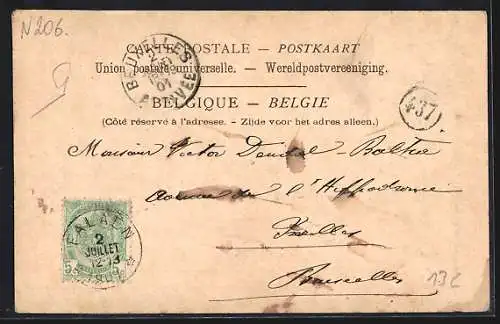 N206.
CARTE POSTALE — POSTKAART
Union postale universelle. — Wereldpostvereeniging.
BELGIQUE — BELGIE
(Côté réservé à l'adresse. — Zijde voor het adres alleen.)
BRUXELLES
ARRIVÉE
437
Monsieur Victor
Avenue de l'Hippodrome
Ixelles
Bruxelles
2
JUILLET
12-13
5c
5c